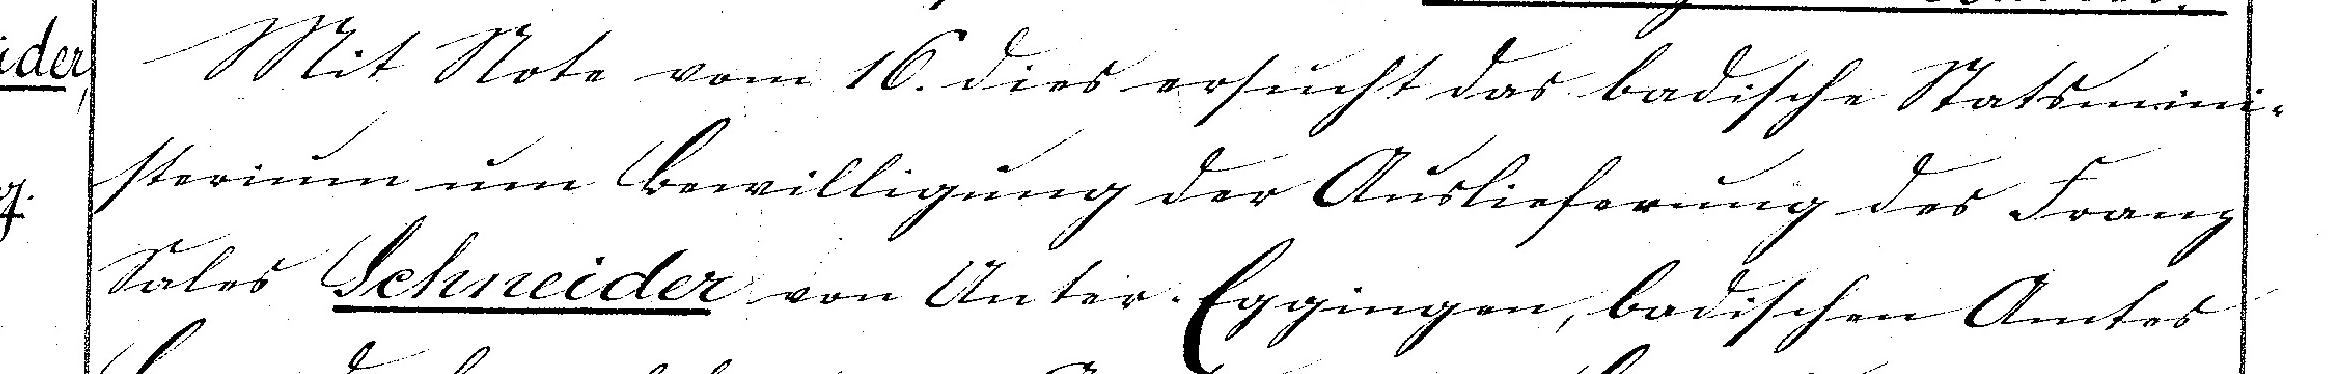 Mit Note vom 16. dies ersucht das badische Statsmini-
sterium um Bewilligung der Auslieferung des Franz
Sales Schneider von Unter-Eggingen, badischen Amtes